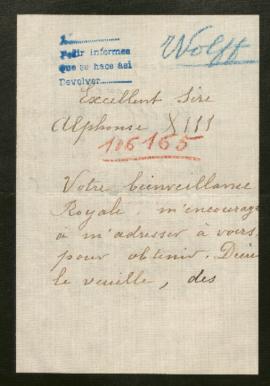 1.
Pedir informes
que se hace así
Devolver
Wolff
Excellent Sire
Alphonse XIII
186165
Votre bienveillance
Royale m'encourage
à m'adresser à vous
pour obtenir. Dieu
le veuille, des